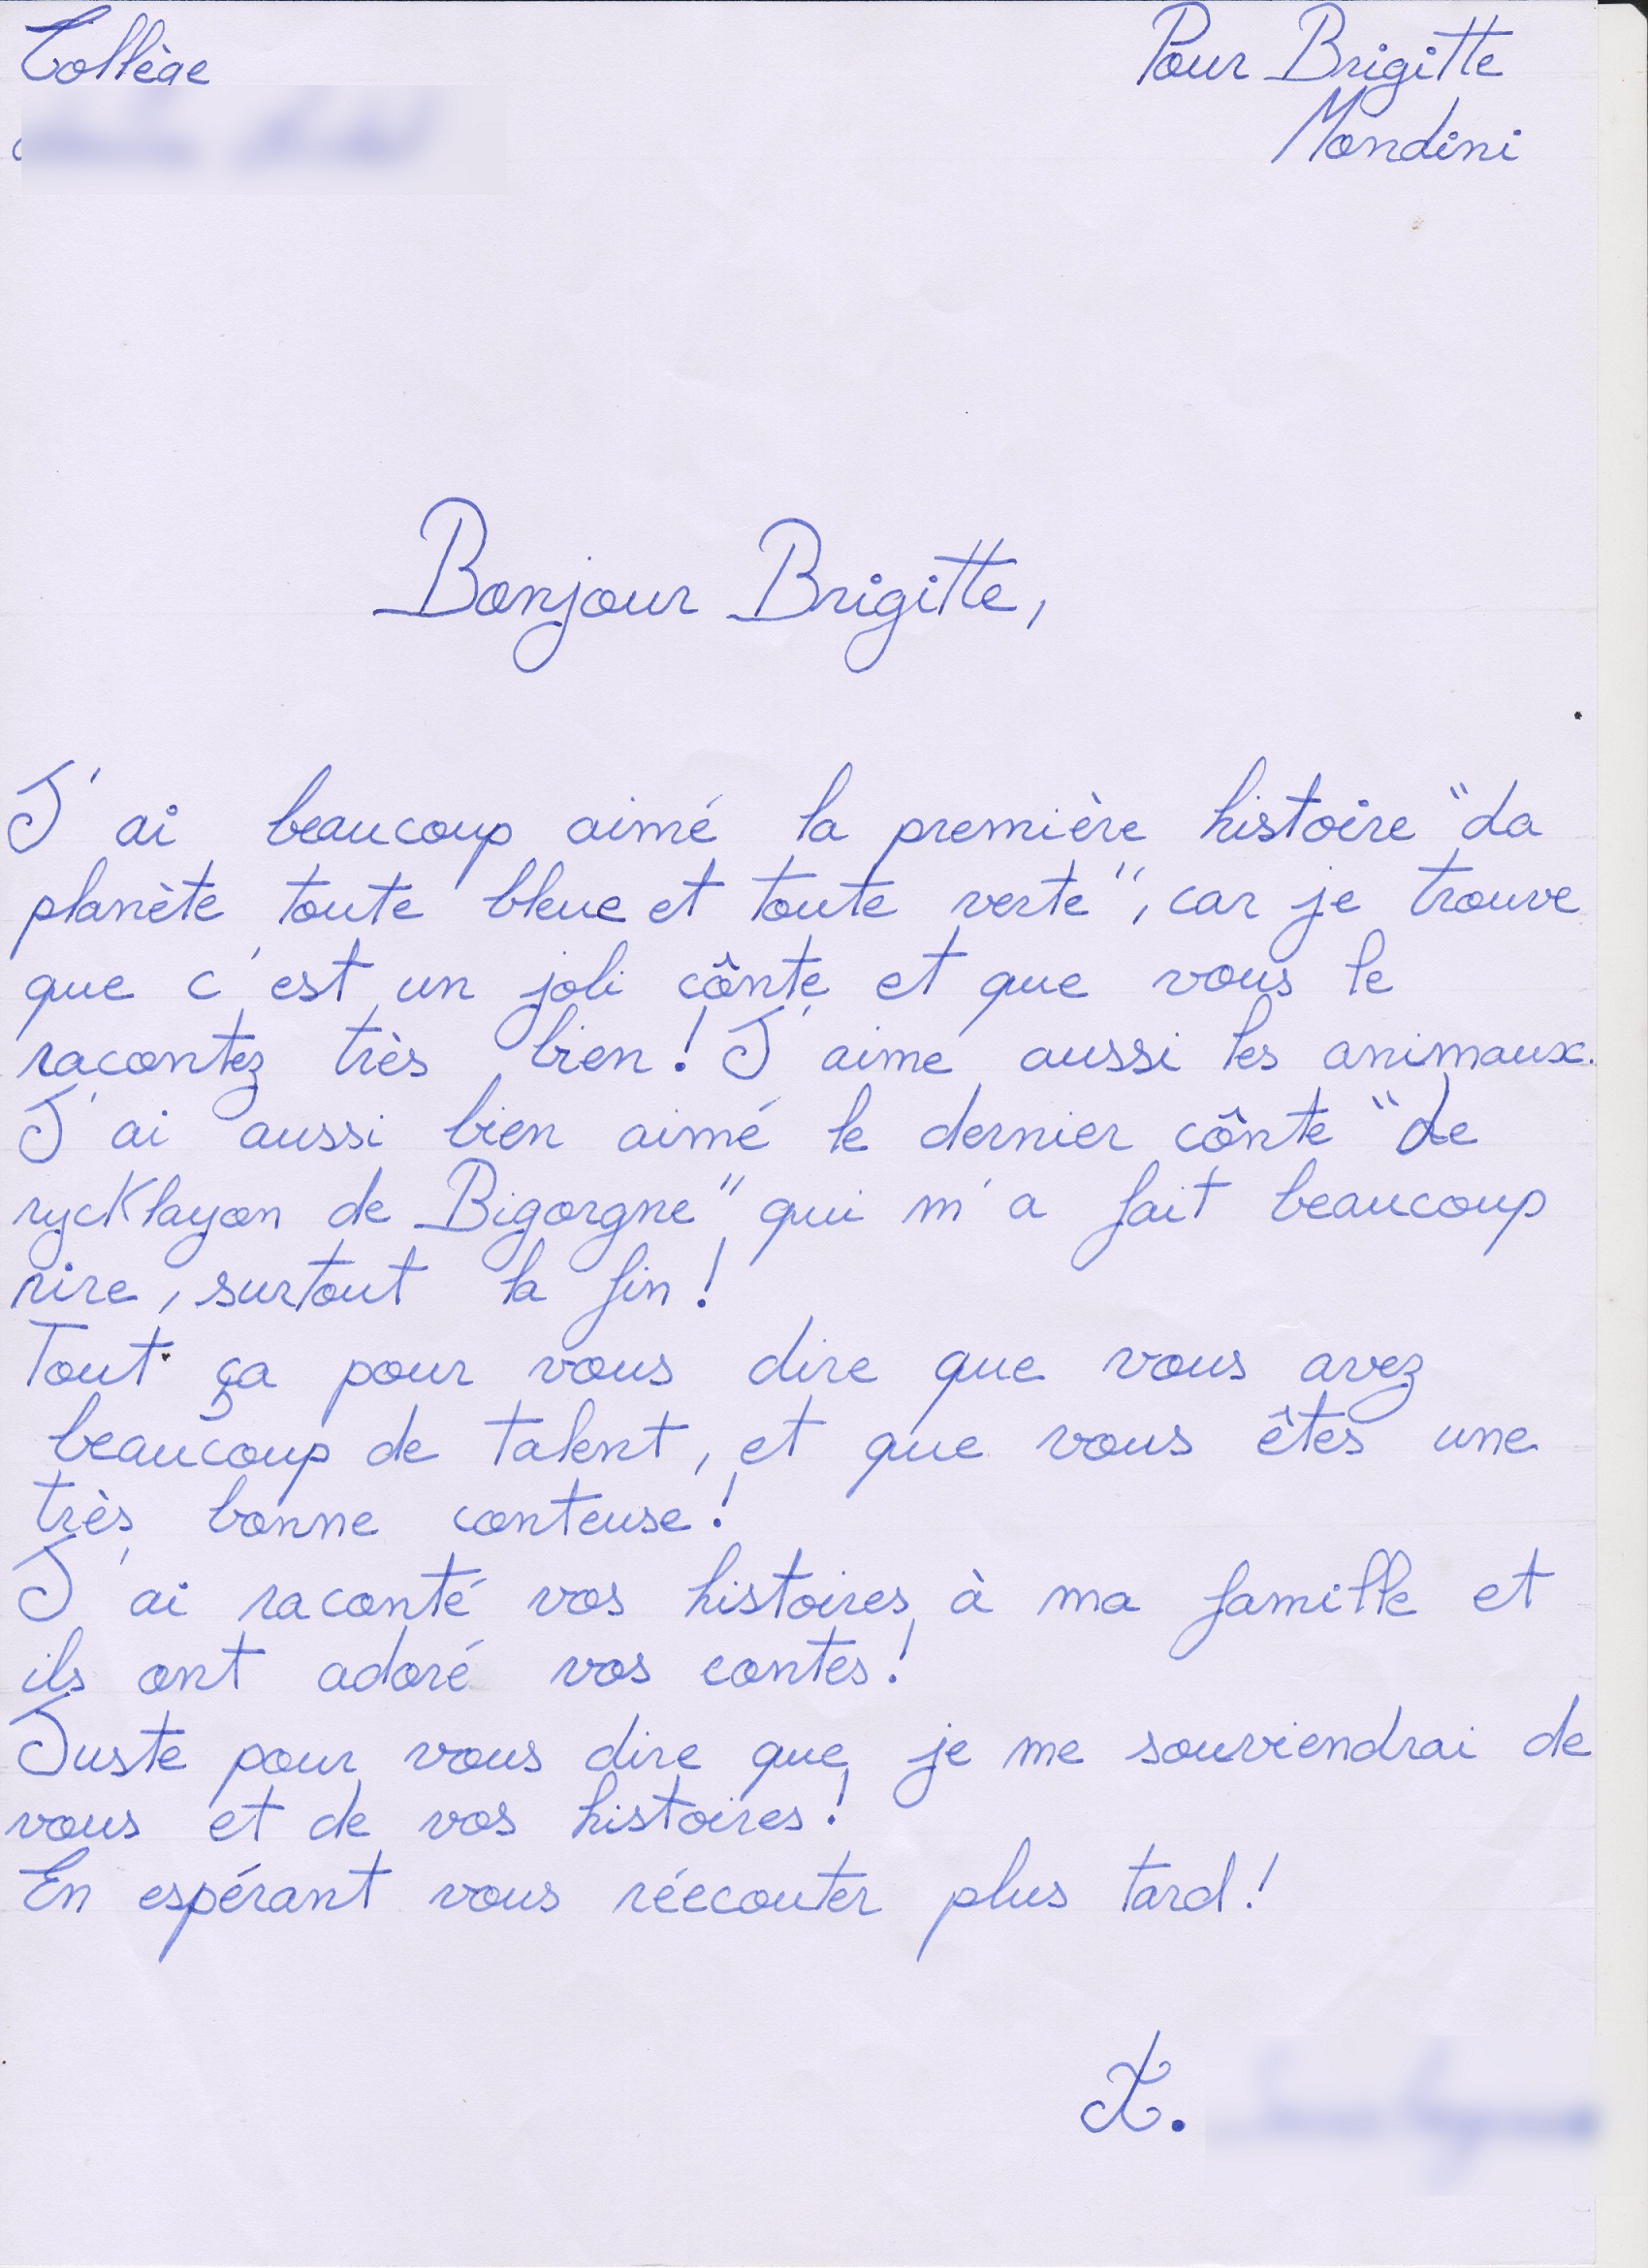 Collège
Pour Brigitte
Mondini
Bonjour Brigitte,
J'ai beaucoup aimé la première histoire "La
planète toute bleue et toute verte", car je trouve
que c'est un joli cônte et que vous le
racontez très bien ! J'aime aussi les animaux.
J'ai aussi bien aimé le dernier cônte "de
rycklayon de Bigorgne" qui m'a fait beaucoup
rire, surtout la fin !
Tout ça pour vous dire que vous avez
beaucoup de talent, et que vous êtes une
très bonne conteuse !
J'ai raconté vos histoires à ma famille et
ils ont adoré vos contes !
Juste pour vous dire que je me souviendrai de
vous et de vos histoires !
En espérant vous réecouter plus tard !
X.